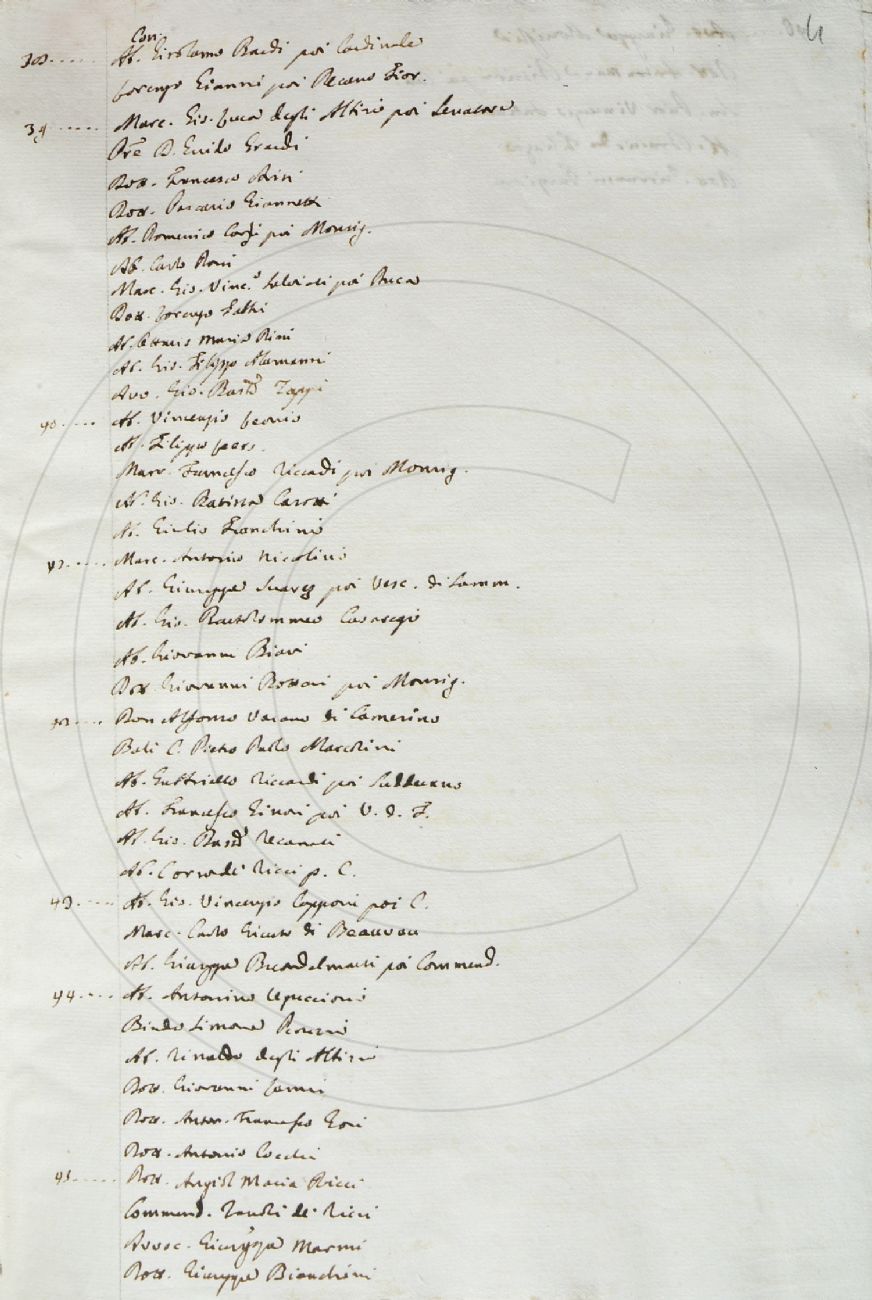 4
Con
38...... Ab. Girolamo Bardi poi Cardinale
Lorenzo Gianni poi Decano Fior.
39...... Marc. Gio. Luca degli Albizi poi Senatore
Pre D. Guido Grandi
Dott. Francesco
Dott. Pascasio Giannetti
Ab. Domenico poi Monsig.
Ab. Carlo
Marc. Gio. Vinc.o Salviati poi Duca
Dott. Lorenzo
Ab. Ottavio Maria Pini
Ab. Gio. Filippo Alamanni
Avv. Gio. Batta Zappi
40..... Ab. Vincenzio Leonio
Ab. Filippo Leers.
Marc. Francesco Riccardi poi Monsig.
Ab. Gio. Batista Casotti
Ab. Giulio Franchini
Marc. Antonio Nicolini
Ab. Giuseppe Suarez poi Vesc. di Samm.
Ab. Gio. Bartolommeo Casaregi
Ab. Giovanni
Dott. Giovanni Bottari poi Monsig.
Don Alfonso Varano di Camerino
Bali C. Pietro Paolo Marcolini
Ab. Gabbriello Riccardi poi Sudduano
Ab. Francesco Ginori poi V. d. F.
Ab. Gio. Batta Recanati
Ab. Corrado Ricci p. C.
43..... Ab. Gio. Vincenzio Capponi poi C.
Marc. Carlo di Beauvau
Ab. Giuseppe Buondelmonti poi Commend.
44.... Ab. Antonino Uguccioni
Bindo Simone Peruzzi
Ab. Rinaldo degli Albizi
Dott. Giovanni Lami
Dott. Anton. Francesco Gori
Dott. Antonio Cocchi
45...... Dott. Angiol Maria Ricci
Commend. de' Ricci
Avvoc. Giuseppe Marmi
Dott. Giuseppe Bianchini